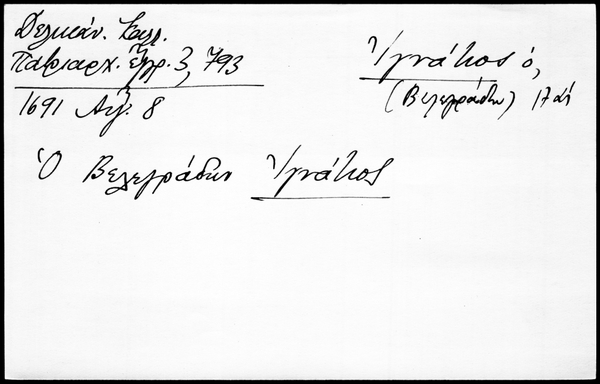 Δελικάν. Καλλ.
Πατριαρχ. Ἔγγρ. 3, 793
1691 Αὐγ. 8
Ἰγνάτιος ὁ,
(Βελεγράδων) 17 αἰ
Ὁ Βελεγράδων Ἰγνάτιος